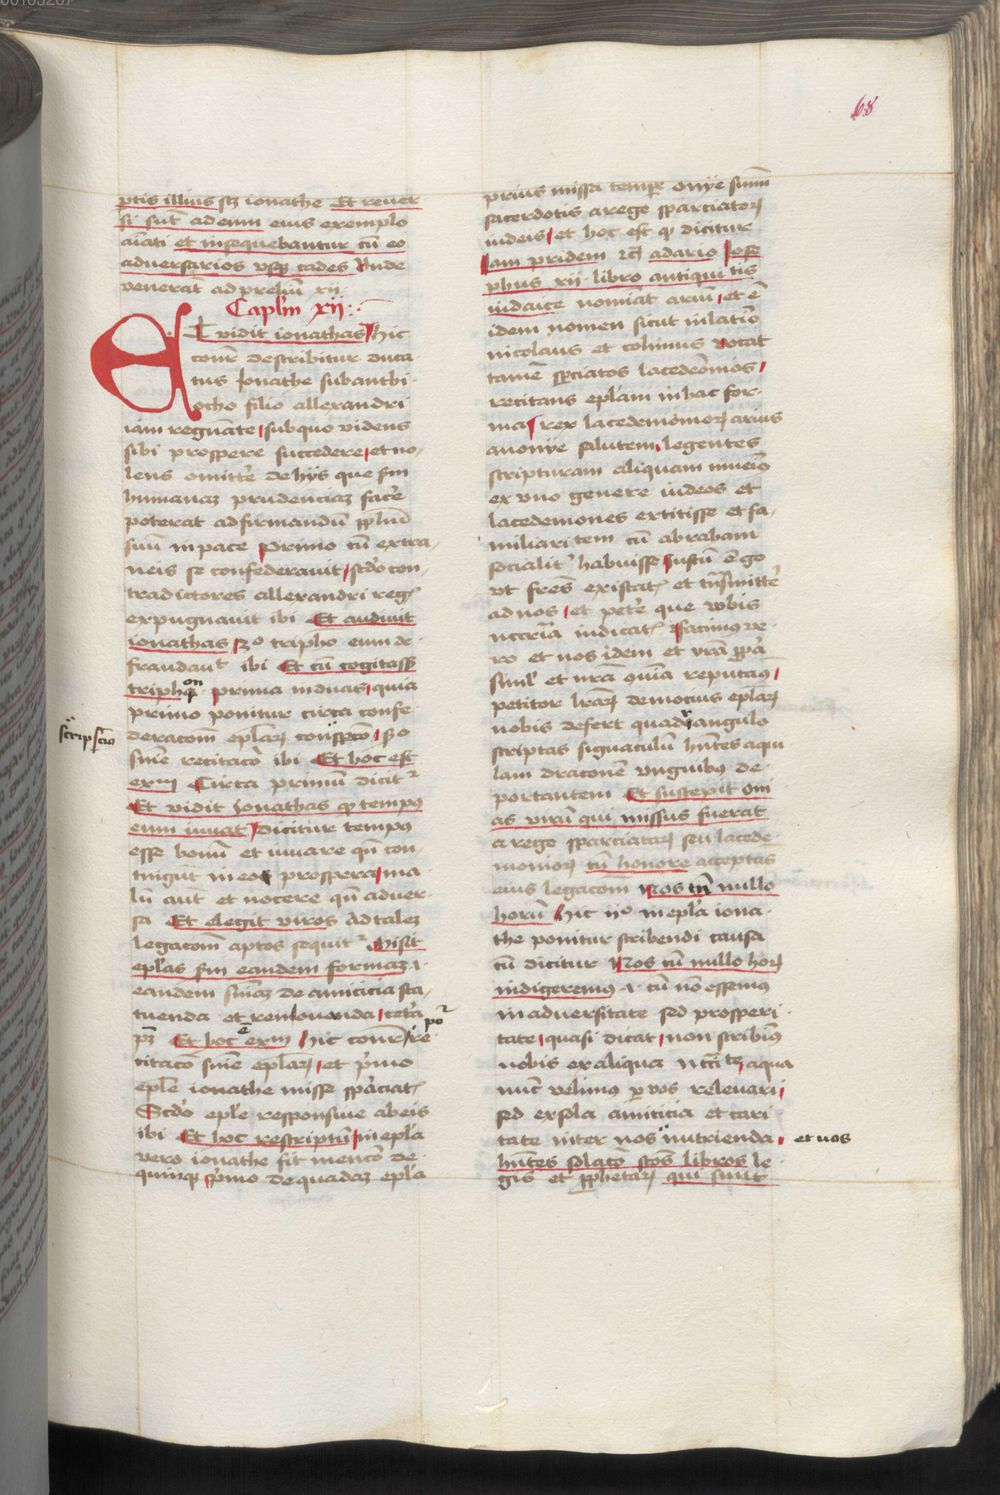 68
ptis illius scz ionathe Et rever
si sūt ad eum eius exemplo
aīati et insequebantur cū eo
adversarios usqꝫ cades Unde
venerāt ad preliū xij
Caplm xij
Et vidit ionathas hic
describitur duca
tus Ionathe sub anthi
ocho filio allexandri
iam regnāte sub quo videns
sibi prospere succedere et no
lens omittēre de hijs que sm
humanaꝫ prudenciaꝫ facēre
poterat ad firmandū ppliū
suū in pace Primo cū extra
neis se confederavit scdo con
tradictores allexandri regꝭ
expugnavit ibi Et audivit
ionathas 3o tripho eum de
fraudavt ibi Et cū cogitassꝫ
triphon prima in duas quia
primo ponitur circa confe
deracoēm eplarꝫ 2o
sīne recitacō ibi Et hoc est
exm Circa primū dicitr
Et vidit Ionathas qꝫ tempꝰ
eum iuvat dicitur tempꝰ
esse bonū et iuvare qn̄ con
tingūt in eo prospera ma
lū aut et nocere qn̄ adver
sa Et elegit viros ad talez
legacoēm aptos sequitr Misit
eplas sm eandem formaꝫ .i.
eandem sniaꝫ de amicicia sta
tuenda et renovanda cetera
pꝫ Et hoc ē exm hic
titacō sīne eplarꝫ et pmo
eple ionathe misse sparciatꝭ
Scdo eple responsive ab eis
ibi Et hoc rescriptū in epla
vero ionathe fit mencō de
quinqꝫ pmo de quadaꝫ epla
prius missa tempe onye summi
sacerdotis a rege sparciatorꝫ
iudeis et hoc est qꝫ dicitur
Iam pridem a dario Iose
phus xij libro antiquitis
iudaice nominat ariū et ē
idem nomen sicut in latīo
nicolaus et colinus vocat
tamē sparciatos lacedemōnios
recitans eplam in hac for
ma rex lacedemoniorꝫ arius
anonye salutem legentes
scripturam aliquam invenimꝰ
ex uno genere iudeos et
lacedemones extitisse et fa
miliaritem cū abraham
socialitr habuisse Iustū ē go
ut frēs existatꝭ et trāsmittēre
ad nos et petēre que vobis
necc̄ria indicatꝭ facimus ve
ro et nos idem et vrā ppa
simlr et nrā quasi reputaꝰ
petitor lrarꝫ demotius eplarꝫ
nobis defert quadriangulo
scriptas signaculū hn̄tes aqui
lam draconē unguibꝰ de
portantem Et suscepit oni
as virū qui missus fuerat
a rege sparciatarꝫ seu lacede
moniorꝫ cū honore acceptas
eius legacoēm Nos cū nullo
horū hic ijo in epla iona
the ponitur scribendi causa
cū dicitur Nos cū nullo horꝫ
indigeremꝰ .i. cū nō essemꝰ
in adversitate sed prosperi
tate quasi dicat non scribimꝰ
vobis ex aliqua a qua
nūc velimꝰ per vos relevari
sed ex sola amicicia et cari
tate inter nos nutrienda et vos
hn̄tes solacō scōs libros le
gis et pphetarꝫ qui sunt